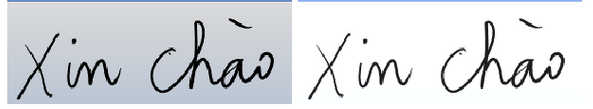 Xin chào Xin chào